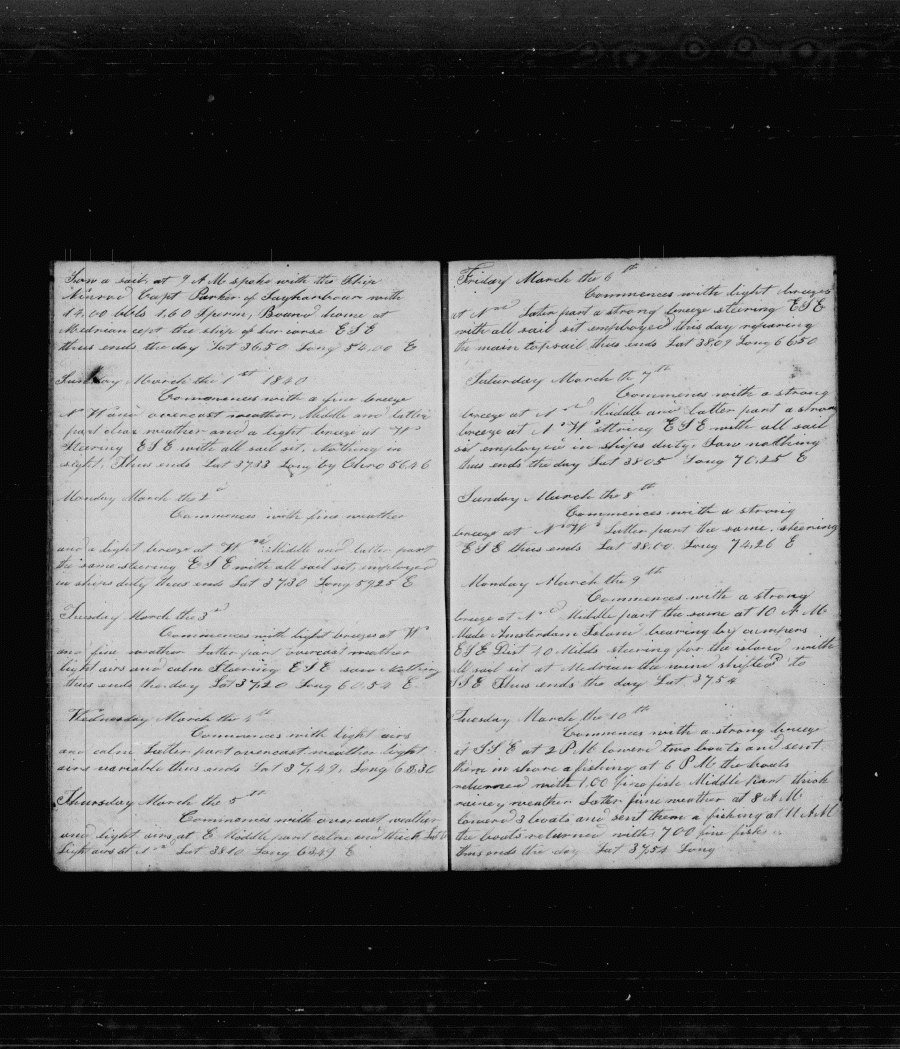 Saw a sail at 9 AM spoke with the Ship
Capt Parker of Sagharbour with
14.00 bbls 1.60 Sperm, Bound home at
Medrian cept the ship of hur corse E S E
thus ends the day Lat 36.50 Long 54.00 E
Sunday March the 1st 1840
Commences with a fine breeze
N W and overcast weather, Middle and latter
part clear weather and a light breeze at W
Steering E S E with all sail sit, Nothing in
sight. Thus ends Lat 37.33 Long by Chro 56.46
Monday March the 2d
Commences with fine weather
and a light breeze at W Middle and latter part
the same steering E S E with all sail sit, employed
in ships duty thus ends Lat 37.30 Long 59.25 E
Tuesday March the 3d
Commences with light breezes at W
and fine weather Latter part overcast weather
light airs and calm Steering E S E saw Nothing
thus ends the day Lat 37.20 Long 60.54 E
Wednesday March the 4th
Commences with light airs
and calm Latter part overcast weather light
airs variable thus ends Lat 37.49, Long 63.30
Thursday March the 5th
Commences with overcast weather
and light airs at E Middle part calm and thick
Light airs at N Lat 38.10 Long 63.49 E
Friday March the 6th
Commences with light breezes
at N Later part a strong breeze steering E S E
with all sail sit employed this day reparing
the main topsail thus ends Lat 38.09 Long 66.50
Saturday March th 7th
Commences with a strong
breeze at N Middle and latter part a strong
breeze at N W stering E S E with all sail
sit employed in ships duty. Saw nothing
thus ends the day Lat 38.05 Long 70.25 E
Sunday March the 8th
Commences with a strong
breeze at N W Latter part the same. steering
E S E thus ends Lat 38.00 Long 74.26 E
Monday March the 9th
Commences with a strong
breeze at N Middle part the same at 10 A M
Made Amsterdam Island bearing by cumpers
E S E Dist 40 Milds steering for the island with
all sail sit at Medrian the wind shifted to
S S E Thus ends the day Lat 37.54
Tuesday March the 10th
Commences with a strong breeze
at S S E at 2 P M lowerd two boats and sent
them in shore a fishing at 6 P M the boats
returned with 100 fine fish Middle part thick
rainey weather Later fine weather at 8 A M
lowerd 3 boats and sent them a fishing at 11 A M
the boats returned with 700 fine fish
thus ends the day Lat 37.54 Long